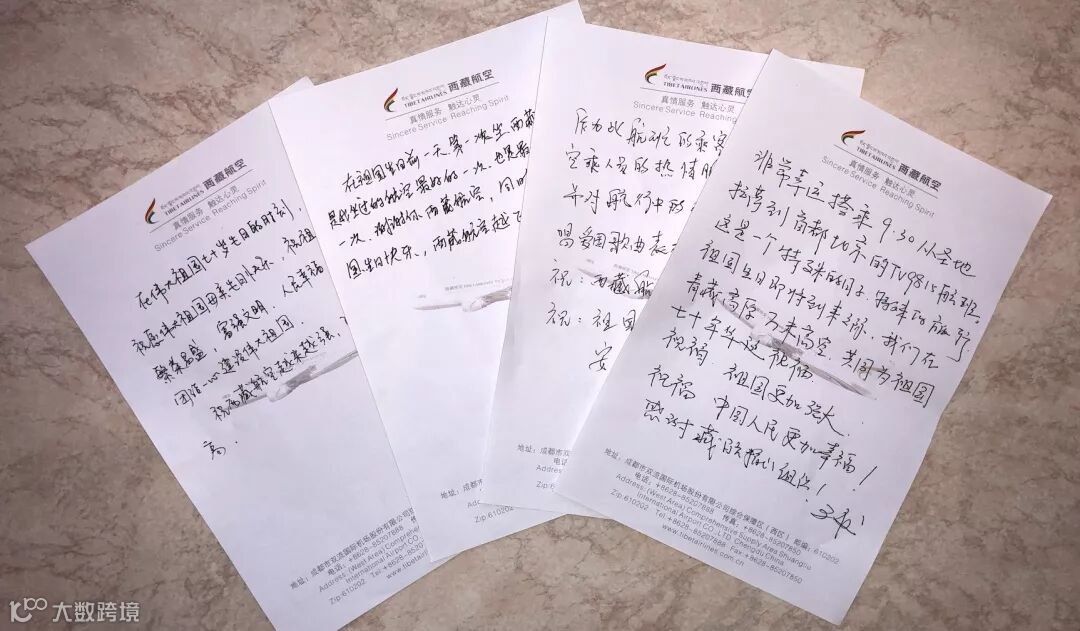 西藏航空
TIBET AIRLINES
真情服务 触达心灵
Sincere Service Reaching Spirit
在伟大祖国七十岁生日的时刻,
祝愿伟大祖国母亲生日快乐、祝祖
繁荣昌盛,富强文明,人民幸福
团结一心建设伟大祖国.
祝西藏航空越来越强、
高.
地址:成都市双流国际机场股份有限公司
电话:+8628-85207888
Address:(West Area) Comprehen
International Airport CO
Zip:610202 Tel:+8628-8520
www.tibeta
西藏航空
TIBET AIRLINES
真情服务 触达心灵
Sincere Service Reaching Spirit
在祖国生日前一天,第一次坐西藏
是我坐过的航空最好的一次.也是最
一次.谢谢你们西藏航空,同时
国生日快乐,西藏航空越飞
地址:成都
电话
Address
Zip:
西藏航空
TIBET AIRLINES
真情服务 触达心灵
Sincere Service Reaching
作为此航班的乘客
空乘人员的热情服
并对航行中的
唱爱国歌曲表
祝:西藏航
祝:祖国
安
西藏航空
TIBET AIRLINES
真情服务 触达心灵
Sincere Service Reaching Spirit
非常幸运搭乘9:30从圣地
拉萨到首都北京的TV9815航班.
这是一个特殊的日子.特殊的旅行
祖国生日即将到来之际,我们在
青藏高原万米高空.共同为祖国
七十年华诞祝福
祝福 祖国更加强大.
祝福 中国人民更加幸福!
感谢藏航 组织!
地址:成都市双流国际机场股份有限公司综合保障区(西区) 邮编:610202
电话:+8628-85207888 传真:+8628-85207850
Address:(West Area) Comprehensive Supply Area Shuangliu
International Airport CO.,LTD Chengdu China
Zip:610202 Tel:+8628-85207888 Fax:+8628-85207850
www.tibetairlines.com.cn
大数跨境